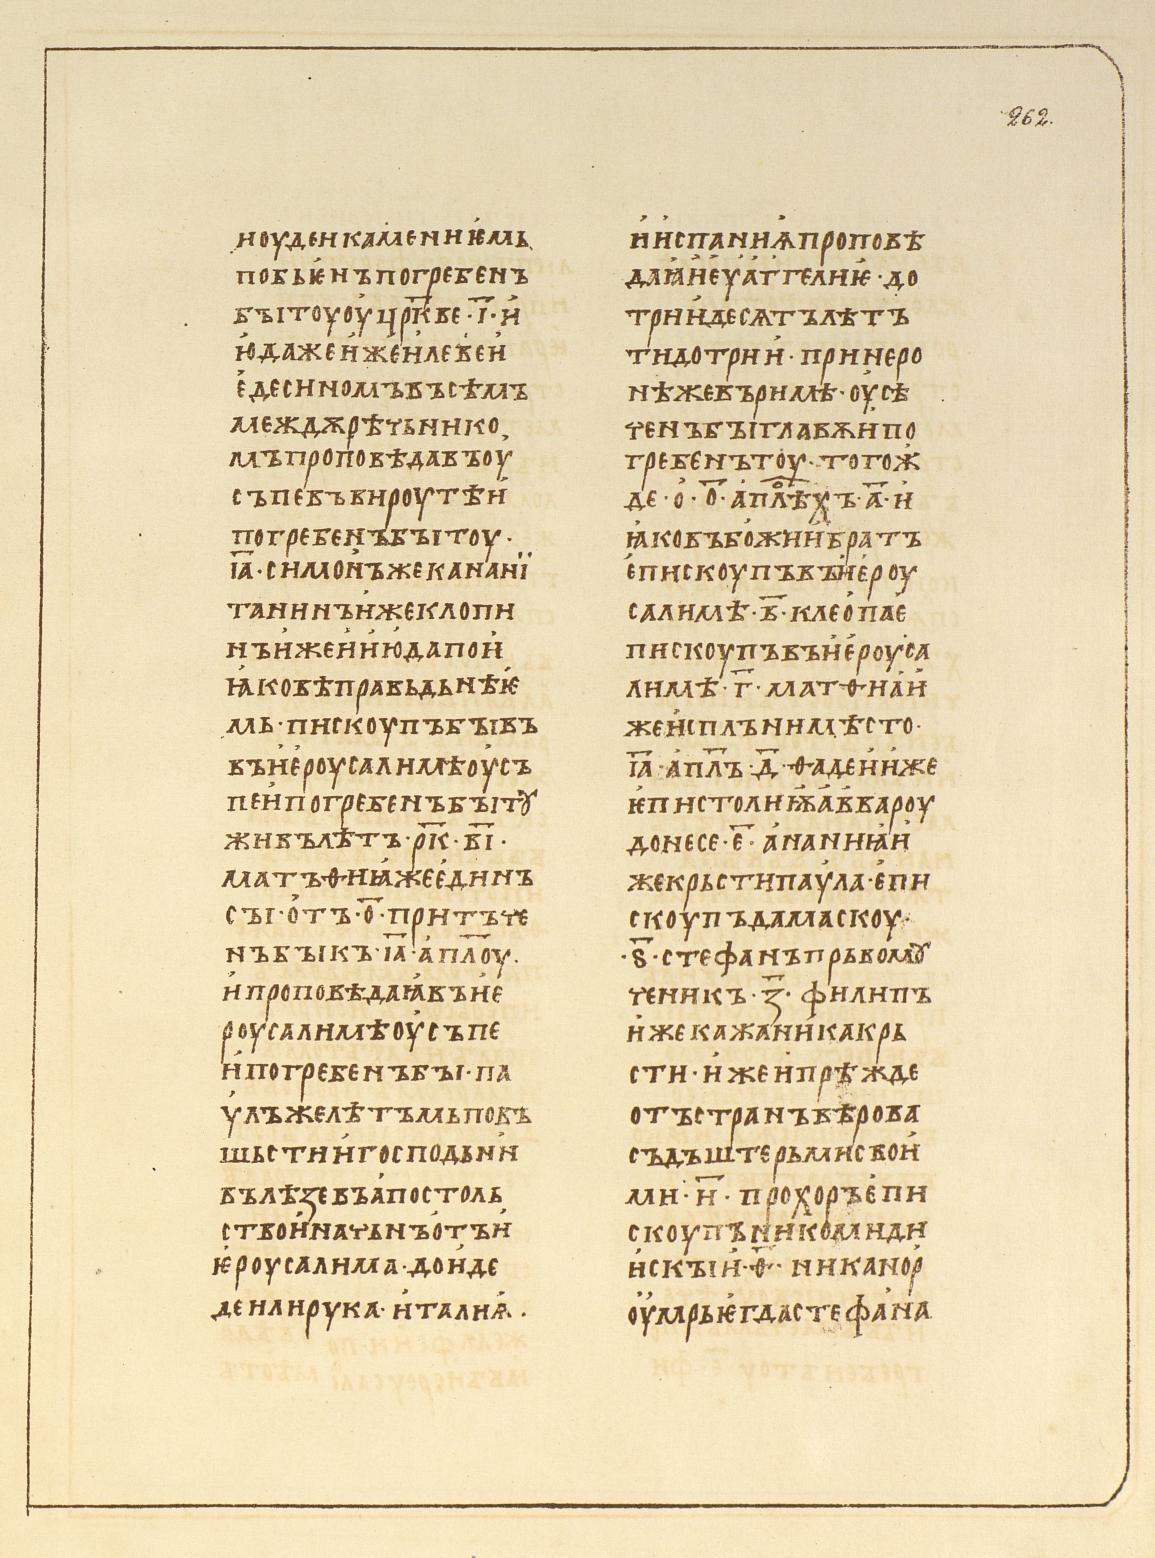 262.
ноуденкамениѥмь
побьѥнъпогребенъ
бъітоуоуцр҃кве·і҃·и
июдажеижеилевеи
едесиномъвъсѣмъ
междѫрѣчьнико
мъпроповѣдавъоу
съпевъвироутѣи
погребенъбъітоу·
іа҃·симонъжеканані
танинъижеклопи
нъижеииюдапои
ꙗковѣправьдьнѣѥ
мь·пискоупъбъівъ
въиероусалимѣоусъ
пеипогребенъбъітꙋ
живълѣтъ·рк҃·ві҃·
матъѳиꙗжеединъ
съі·отъ·о҃·притъче
нъбъікъ·іа҃·апл҃оу·
ипроповѣдаꙗвъие
роусалимѣоусъпе
ипогребенъбъі·па
улъжелѣтъмьповъ
шьстииигосподьни
вълѣзевъапостоль
ствоиначьнъотъи
ѥроусалима·доиде
деилирука·италиѩ·
ииспаниѩпроповѣ
даꙗиеуаггелиѥ·до
триидесѧтълѣтъ
тидотрии·принеро
нѣжевъримѣ·оусѣ
ченъбъіглавѫипо
гребенътоу·тогож
де·о·о҃·апл҃ѣхъ·а҃·и
ꙗковъбожиибратъ
епискоупъвъиероу
салимѣ·в҃·клеопае
пископъвъиероуса
лимѣ·г҃·матѳиаи
жеисплънимѣсто·
іа҃·апл҃ъ·д҃·ѳадеииже
ѥпистолиѭаввароу
донесе·е҃·ананиꙗи
жекрьстипаула·епи
скоупъдамаскоу·
·ѕ҃·стефанъпрьвомꙋ
ченикъ·з҃·филипъ
ижекажаникакрь
сти·ижеипрѣжде
отъстранъвѣрова
съдъштерьмисвои
ми·и҃·прохоръепи
скоупъникомиди
искъіи·ѳ҃·никанор
оумрьѥгдастефана